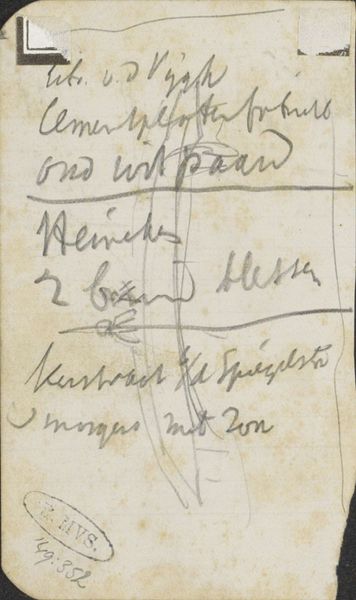 v.d Vijgh
Cementplatenfabriek
oud wit paard
Heineken
2 blessen
Kerkstraat b/d Spiegelstr
morgens met zon
MVS.
49:352